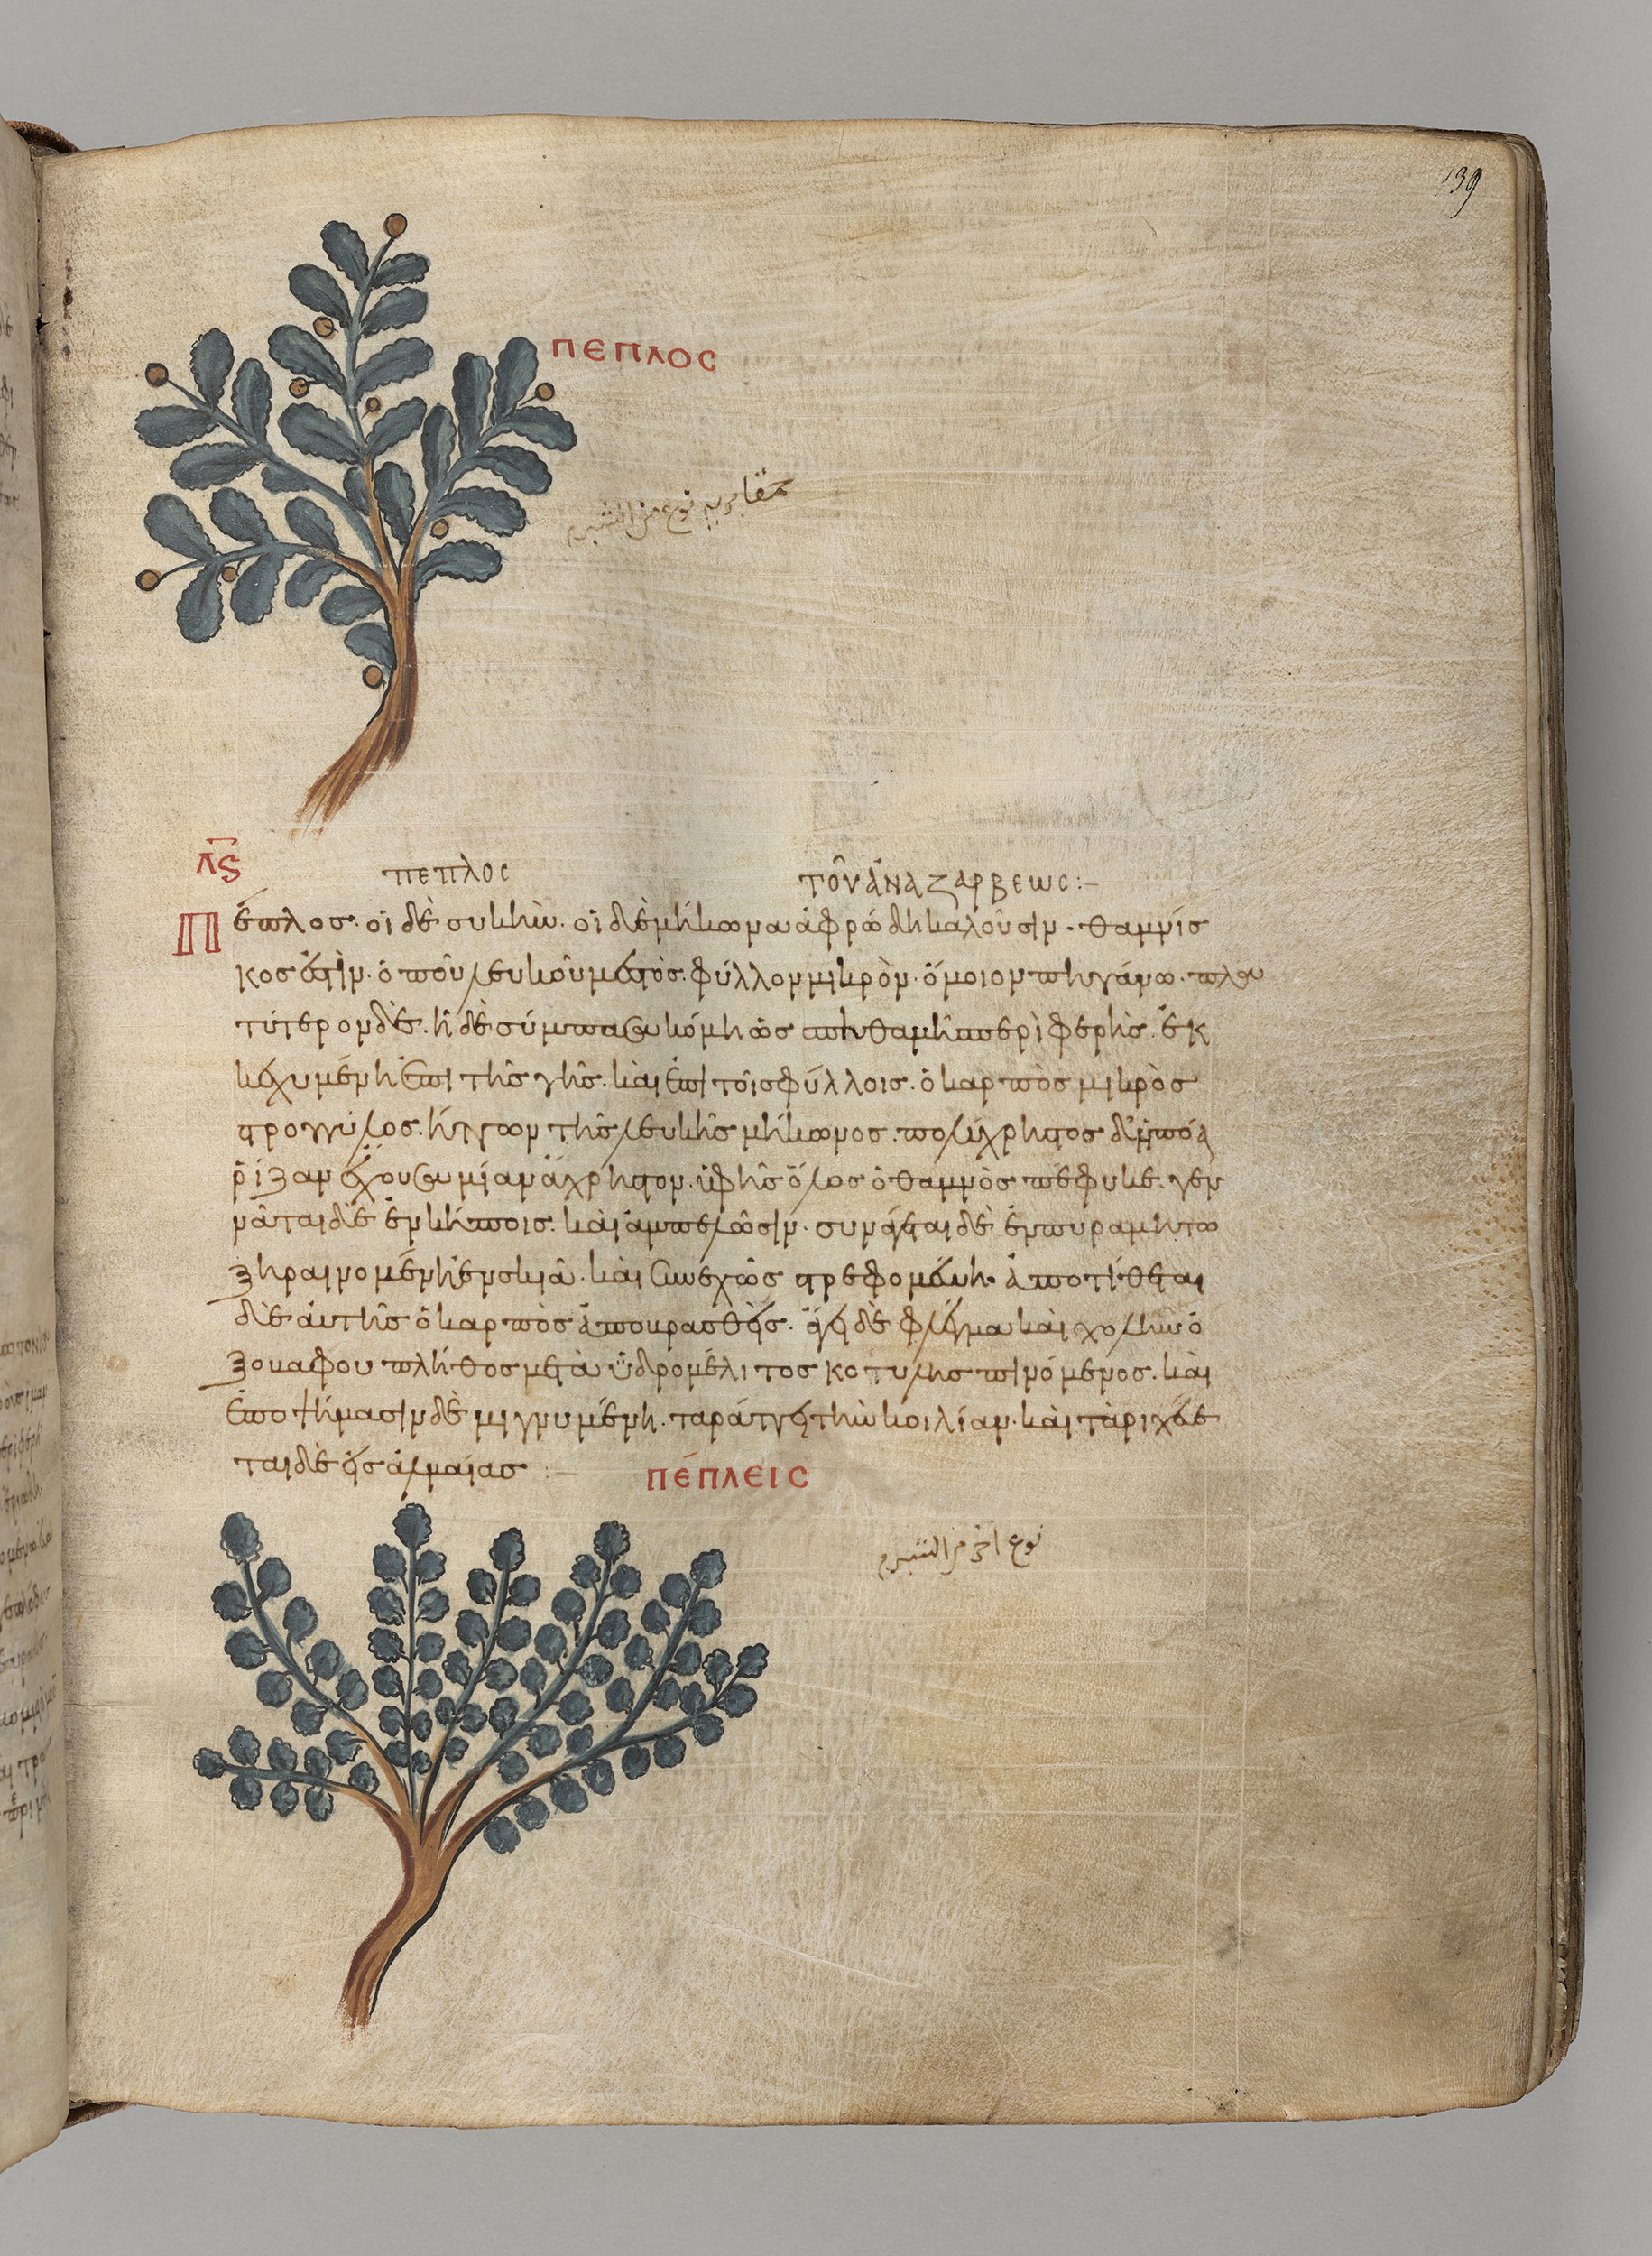 139
ΠΕΠΛΟC
نوع من الشبرم
λς
πεπλος τοῦ ἀναζαρβεως:–
Πέπλος· οἱ δὲ συκὴν· οἱ δὲ μήκωνα ἀφρώδη καλοῦσιν· θαμνίσ
κος ἐστὶν· ὀποῦ λευκοῦ μεστὸς· φύλλον μικρὸν· ὅμοιον πηγάνω· πλα
τύτερον δὲ· ἡ δὲ σύμπασα κόμη ὡς σπιθαμὴ περιφερὴς· ἐκ
κεχυμένη ἐπὶ τῆς γῆς· καὶ ἐπὶ τοῖς φύλλοις· ὁ καρπὸς μικρὸς
στρογγύλος· ἥττων τῆς λευκῆς μήκωνος· πολύχρηστος δ' ἡ πόα
ῥίζαν ἔχουσα μίαν ἄχρηστον· ἀφ ἧς ὅλος ὁ θαμνὸς πέφυκε· γεν
νᾶται δὲ ἐν κήποις· καὶ ἀμπελῶσιν· συνάγεται δὲ ἐν πυραμητω
ξηραινομένη ἐν σκιᾶ· καὶ συνεχῶς στρεφομένη· ἀποτίθεται
δὲ αὐτῆς ὁ καρπὸς ἀποκρασθείς· ἄγει δὲ φλέγμα καὶ χολὴν ὁ
ξοβαφου πλῆθος μετὰ ὑδρομέλιτος κοτύλης πινόμενος· καὶ
ἐποψήμασιν δὲ μιγνυμένη· ταράττει τὴν κοιλίαν· καὶ ταριχεύε
ται δὲ εἰς ἁλμαίας :–
ΠΕΠΛΕΙC
نوع آخر من الشبرم